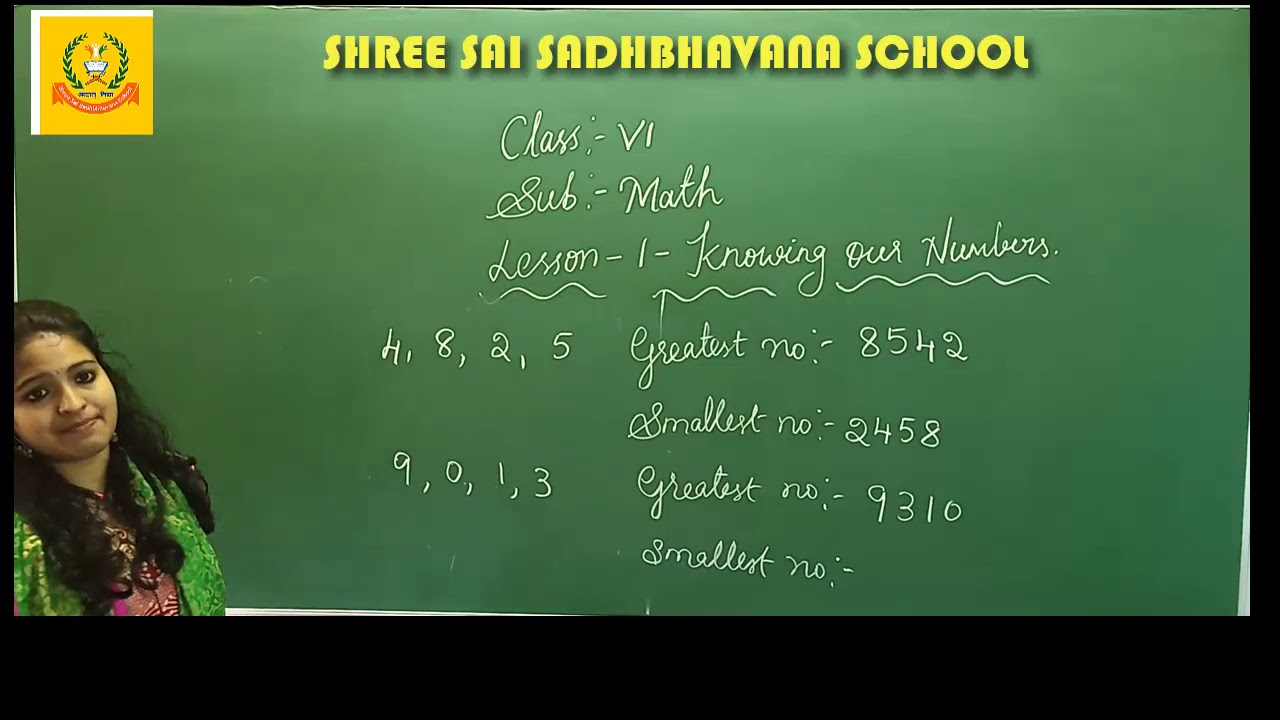 SHREE SAI SADHBHAVANA SCHOOL
Class:- VI
Sub:- Math
Lesson - 1 - Knowing our Numbers.
4, 8, 2, 5 Greatest no:- 8542
Smallest no:- 2458
9, 0, 1, 3 Greatest no:- 9310
Smallest no:-